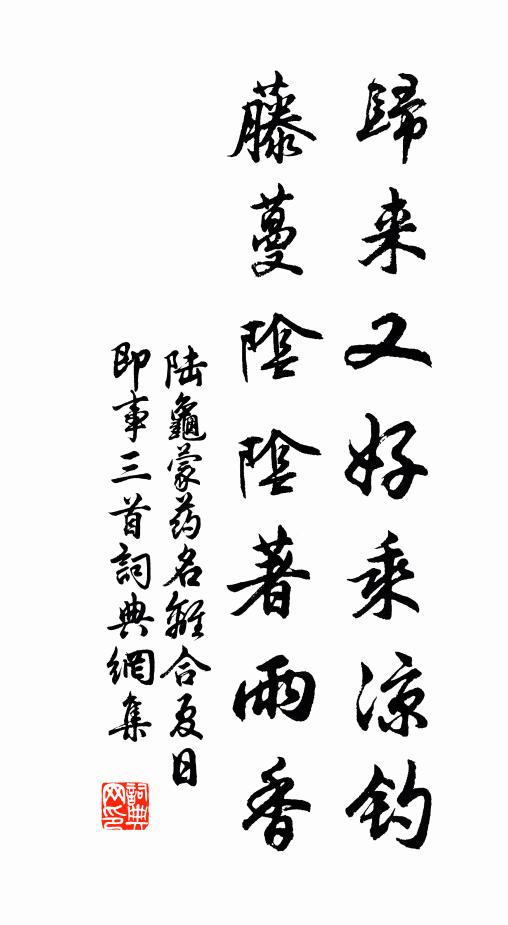 歸来又好乘涼釣
藤蔓陰陰著雨香
陆龜蒙药名離合夏日
即事三首詞典網集
詞典网印